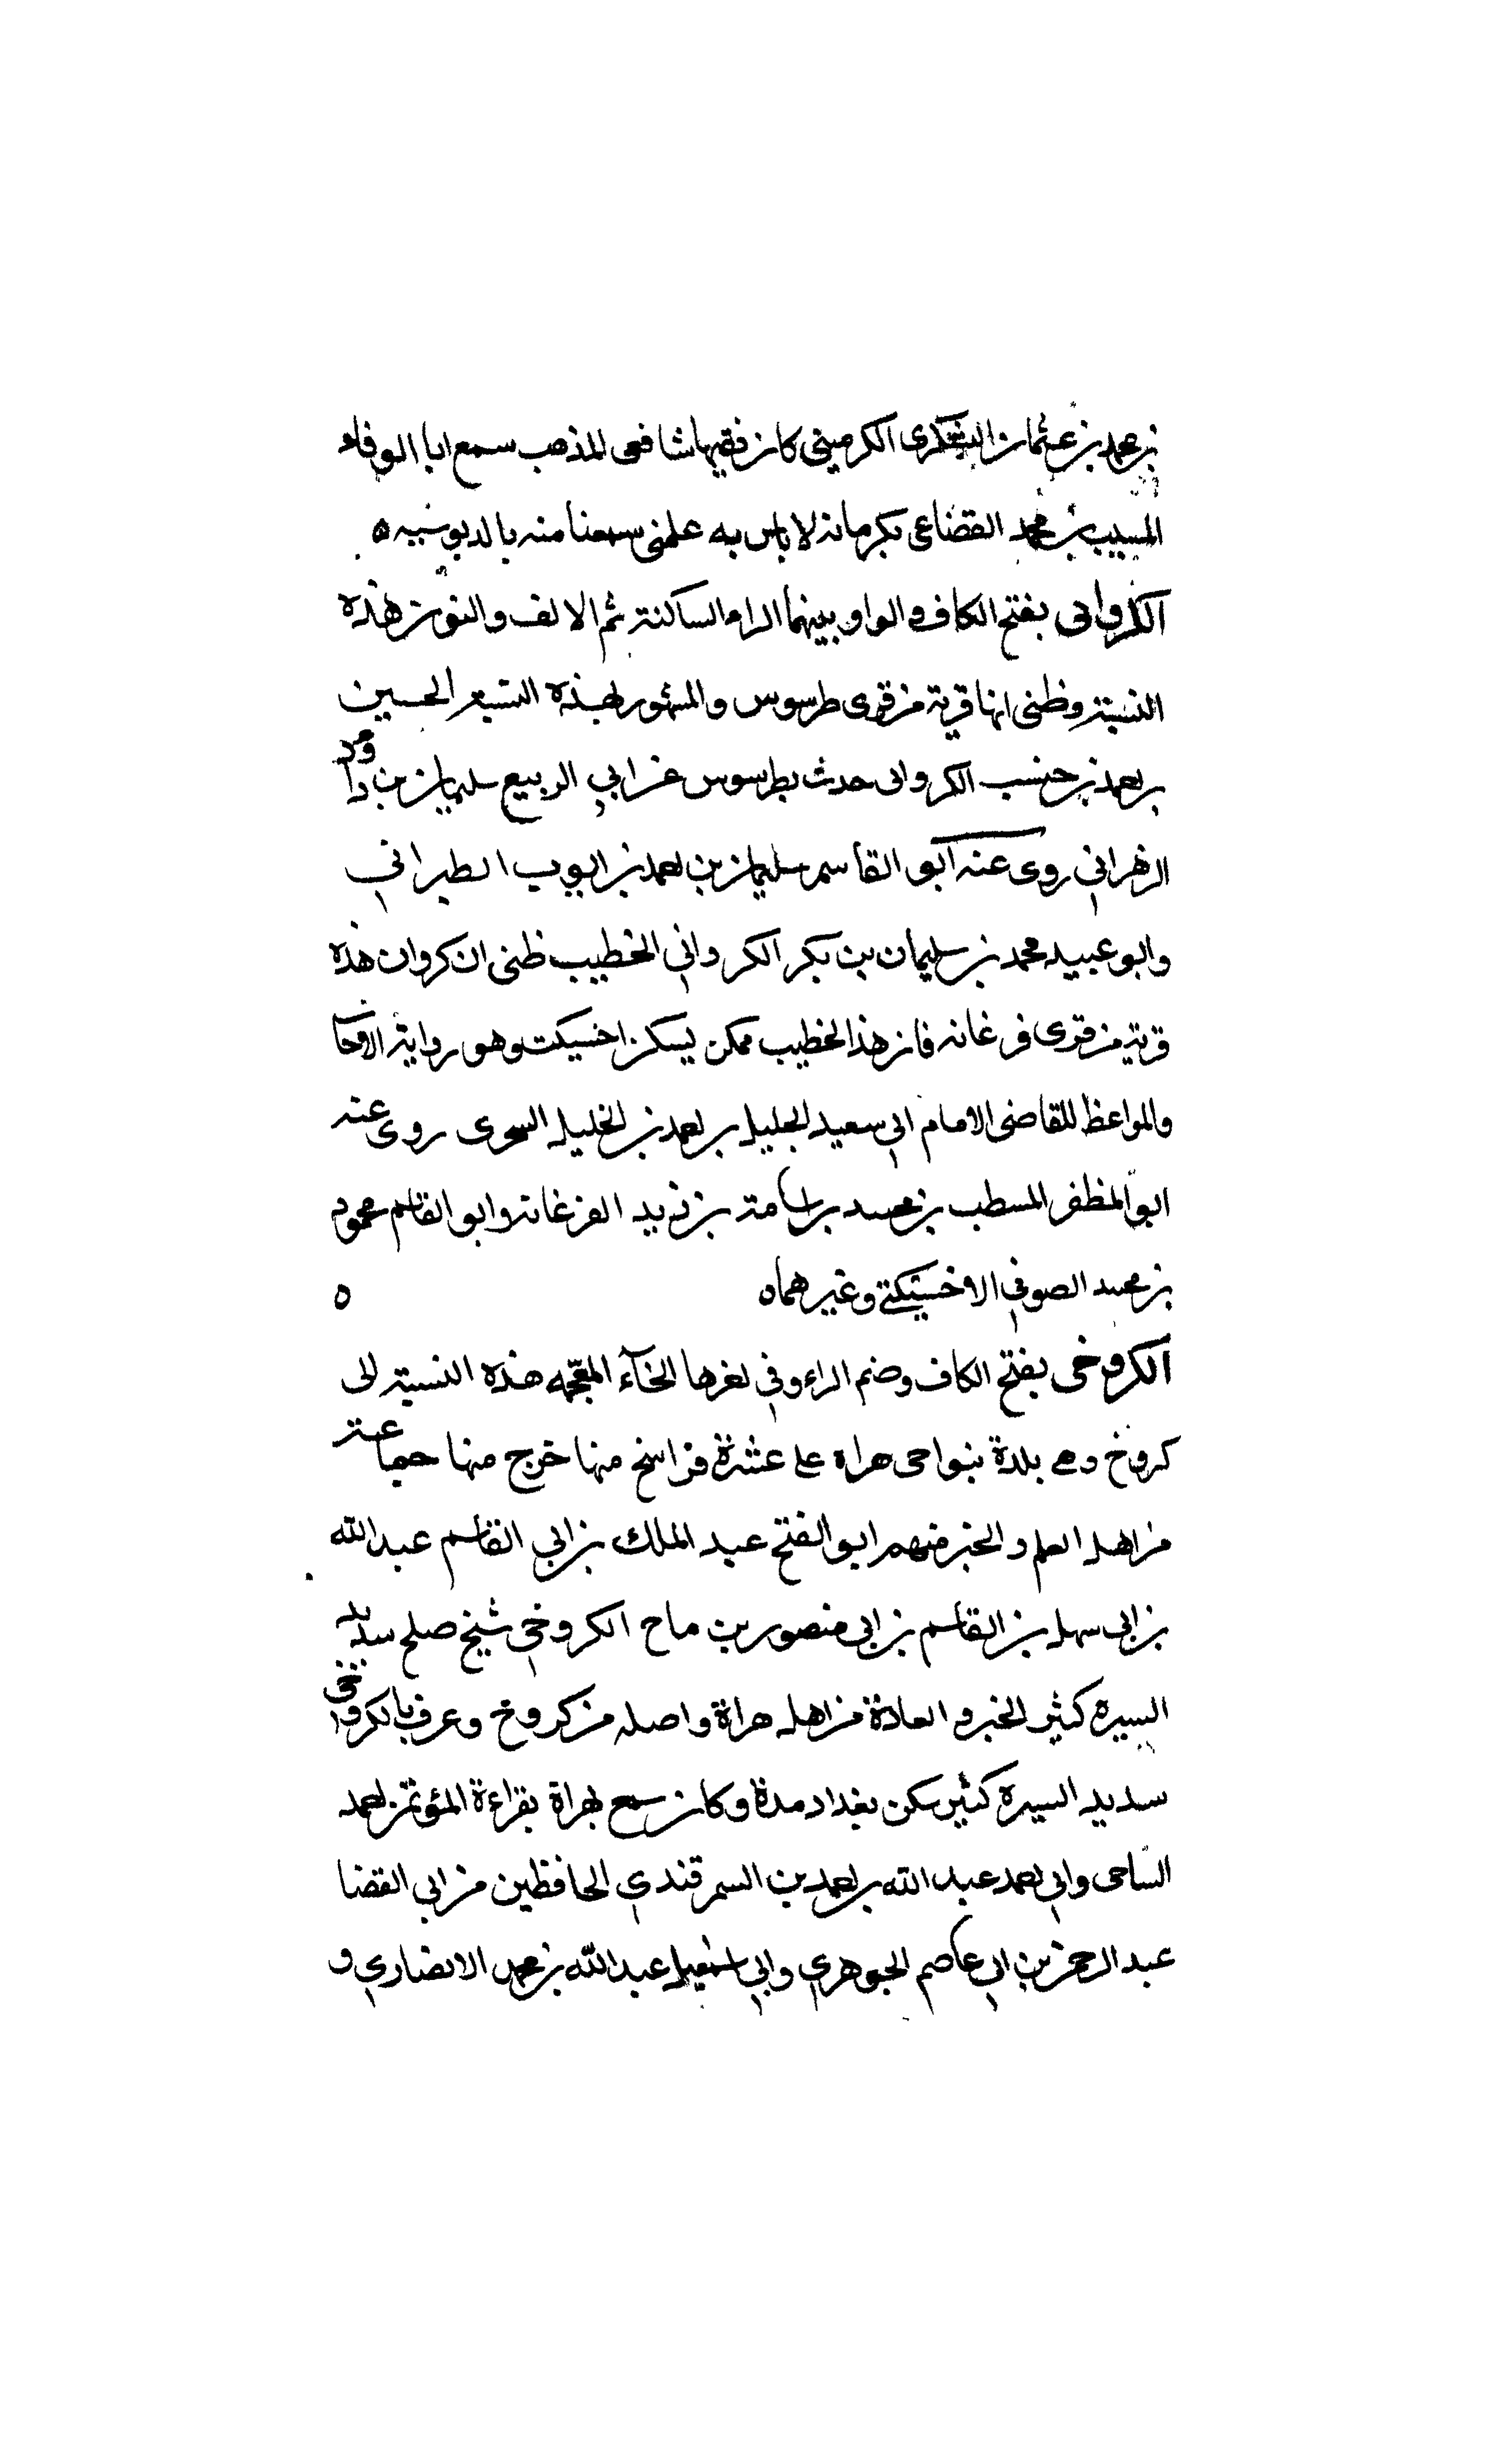 بن محمد بن عثمان الكرميني كان فقيها شافعي المذهب سمع ابا الوفاء
المسيب بن محمد القضاعي بكرمانه لا باس به علمني سمعنا منه بالدبوسيه ه
الكرواني بفتح الكاف والواو بينهما الراء الساكنة ثم الالف والنون هذه
النسبة وظني انها قرية من قرى طرسوس والمشهور بهذه النسبة الحسين
بن احمد بن الكرواني حدث بطرسوس عن ابي الربيع سليمان بن داود
الزهراني روى عنه ابو القاسم سليمان بن احمد بن ايوب الطبراني
وابو عبيد محمد بن سليمان بن بكر الكرواني الخطيب ظني ان كروان هذه
قرية من قرى فرغانه فان هذا الخطيب ممكن يسكن اخسيكت وهو
والمواعظ للقاضي الامام ابي سعيد الجليل بن احمد بن الخليل السجزى روى عنه
ابو المظفر المسطب بن محمد بن اسامة بن زيد الفرغانه وابو القاسم محمود
بن محمد الصوفي الاخسيكتي وغيرهما ه ه
الكروخى بفتح الكاف وضم الراء وفي اخرها الخآء المعجمه هذه النسبة الى
كروخ وهي بلدة بنواحي هراه على عشرة فراسخ منها خرج منها جماعة
من اهل العلم والخير منهم ابو الفتح عبد الملك بن ابي القاسم عبد الله
بن ابي سهل بن القاسم بن ابي منصور بن ماح الكروخي شيخ صلح سديد
السيرة كثير الخير و العادة من اهل هراة واصله من كروخ وعرف بالكروخي
سديد السيرة كثير سكن بغداد مدة وكان سمع بهراة بقراءة المؤتمن احمد
الساجي وابي احمد عبد الله بن احمد بن السمرقندي الحافظين من ابي القضا
عبد الرحمن بن ابي عاصم الجوهري وابي اسمعيل عبد الله بن محمد الانصاري و